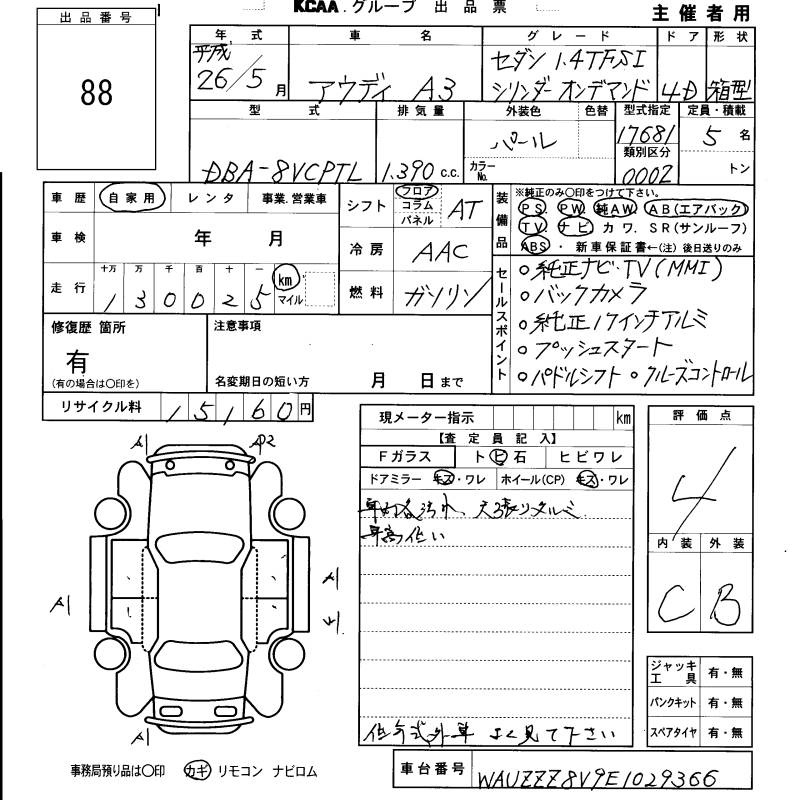 KCAA.グループ 出品票
主催者用
出品番号
88
年式 車名 グレード ドア 形状
平成 26/5月 アウディ A3 セダン 1.4TFSI
シリンダーオンデマンド 4D 箱型
型式 排気量 外装色 色替 型式指定 定員・積載
DBA-8VCPTL 1.390 c.c. パール カラーNo. 17681 5名
類別区分 0002 トン
車歴 自家用 レンタ 事業.営業車
車検 年 月
走行 十万 万 千 百 十 一
1 3 0 0 2 5 km マイル
シフト フロア コラム パネル AT
冷房 AAC
燃料 ガソリン
装備品 ※純正のみ〇印をつけて下さい。
PS. PW. 純AW. AB(エアバック)
TV. ナビ カワ. SR(サンルーフ)
ABS ・ 新車保証書←(注)後日送りのみ
セールスポイント
○純正ナビ・TV(MMI)
○バックカメラ
○純正17インチアルミ
○プッシュスタート
○パドルシフト ○クルーズコントロール
修復歴 箇所
有
(有の場合は〇印を)
注意事項
名変期日の短い方 月 日まで
リサイクル料 15160円
現メーター指示 km
【査定員記入】
Fガラス ト ヒ 石 ヒビワレ
ドアミラー キズ・ワレ ホイール(CP) キズ・ワレ
天張りタルミ
車高低い
よく見て下さい
評価点
4
内装 外装
C B
ジャッキ工具 有・無
パンクキット 有・無
スペアタイヤ 有・無
A1 A2
A1
A1
A1
事務局預り品は〇印 カギ リモコン ナビロム
車台番号 WAUZZZ8V9E1029366